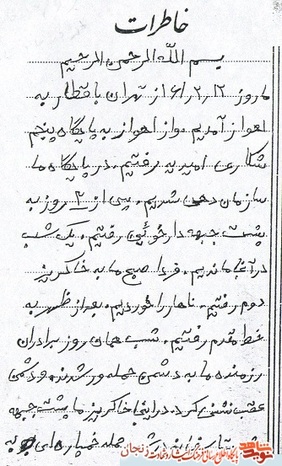 خاطرات
بسم الله الرحمن الرحیم
ما روز ۶۱/۲/۱۲ از تهران با قطار به
اهواز آمدیم. و از اهواز به پایگاه پنجم
شکاری امیدیه رفتیم. در پایگاه ما
سازماندهی شدیم. پس از ۲ روز به
پشت جبهه دارخوئین رفتیم. یک شب
در آنجا ماندیم. فردا صبح ما به خاکریز
دوم رفتیم. ناهار را خوردیم. بعد از ظهر به
خط مقدم رفتیم. شب همان روز برادران
رزمنده ما به دشمن حمله ور شدند. و دشمن
عقب نشینی کرد. در اینجا خاکریز ما پشت جبهه
خمپاره ای به
نوید شاهد
زنجان